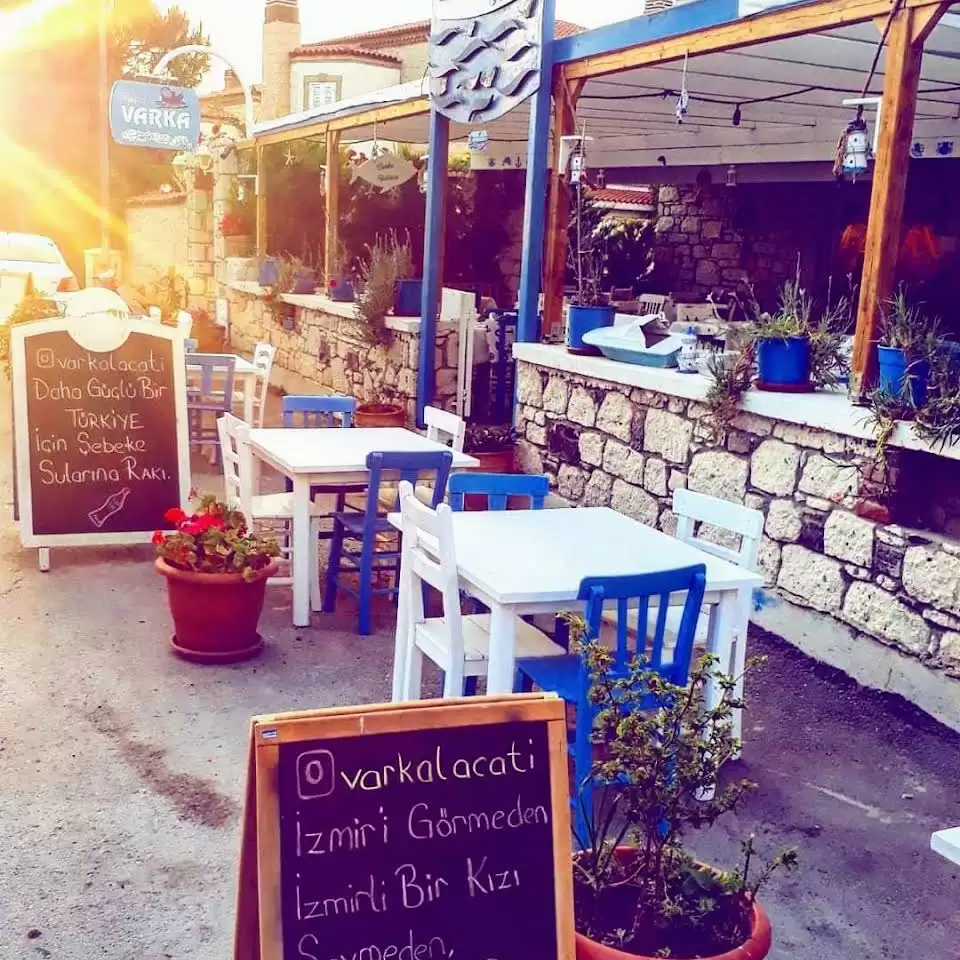 VARKA
varkalacati
Daha Güçlü Bir
TÜRKİYE
İçin Şebeke
Sularına Rakı.
varkalacati
İzmir'i Görmeden
İzmirli Bir Kızı
Sevmeden,